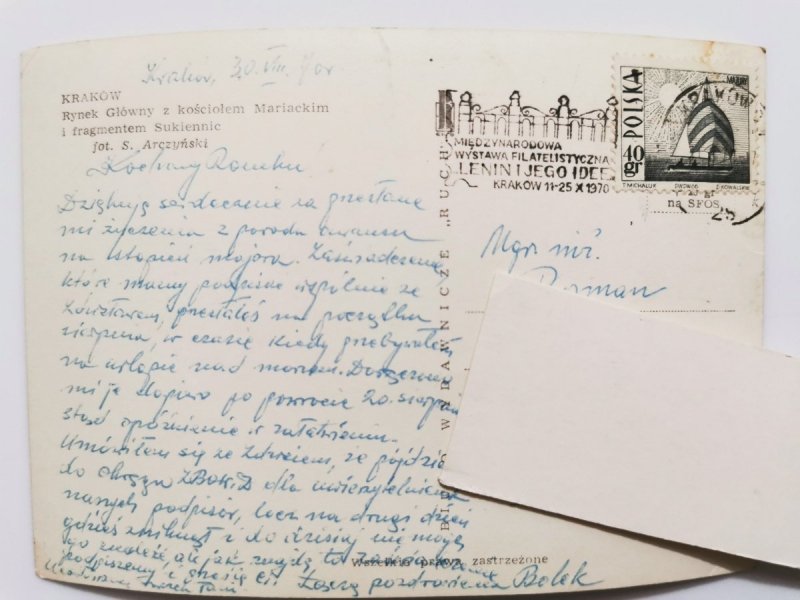 Kraków, 30.VIII.70r
KRAKÓW
Rynek Główny z kościołem Mariackim
i fragmentem Sukiennic
fot. S. Arczyński
Kochany Romku
Dziękuję serdecznie za przesłane
mi życzenia z powodu awansu
na stopień majora. Zaświadczenie,
które mamy podpisać wspólnie ze
Zdzisławem, przesłałeś na początku
sierpnia, w czasie kiedy przebywałem
na urlopie nad morzem. Doręczono
mi je dopiero po powrocie 20. sierpnia
stąd opóźnienie w załatwieniu.
Umówiłem się ze Zdzisiem, że pójdzie
do okręgu ZBOWiD dla uwierzytelnienia
naszych podpisów, lecz na drugi dzień
gdzieś zniknął i do dzisiaj nie mogę
go znaleźć ale jak znajdę to zaraz
podpiszemy i prześlę Ci. Łączę pozdrowienia Bolek
BIURO WYDAWNICZE „RUCH"
Wszelkie prawa zastrzeżone
MIĘDZYNARODOWA
WYSTAWA FILATELISTYCZNA
LENIN I JEGO IDEE
KRAKÓW 11-25 X 1970
POLSKA
40 gr
T.MICHALUK PWPW 66 Z.KOWALSKI
KRAKÓW
25
na SFOS
Mgr inż.
Roman